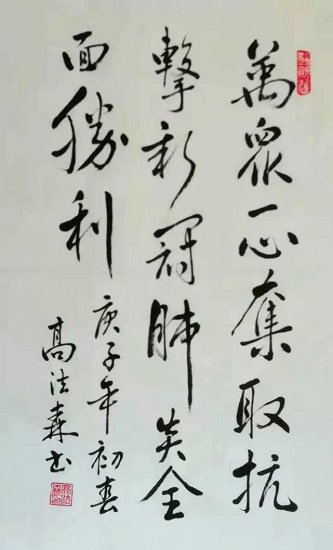 萬眾一心奪取抗
擊新冠肺炎全
面勝利
庚子年初春
高法森书